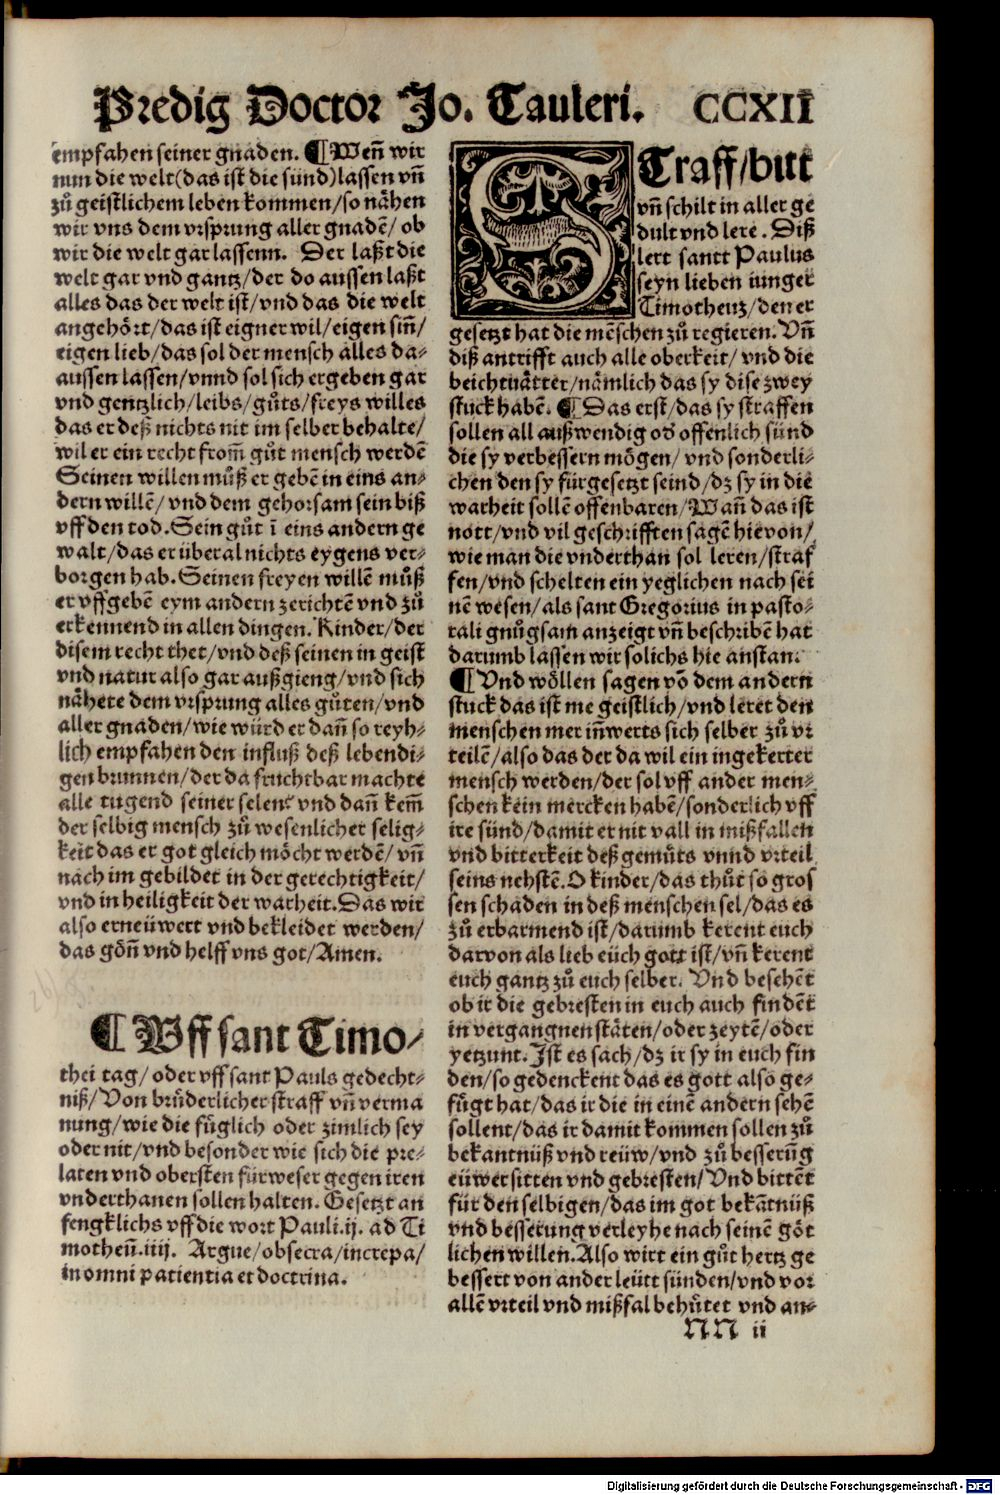 Predig Doctor Jo. Tauleri. CCXII
empfahen seiner gnaden. ¶ Weñ wir
nun die welt(das ist die sünd)lassen vñ
zů geistlichem leben kommen/so nähen
wir vns dem vrsprung aller gnadẽ/ ob
wir die welt gar lassenn. Der laßt die
welt gar vnd gantz/der do aussen laßt
alles das der welt ist/vnd das die welt
angehört/das ist eigner wil/eigen siñ/
eigen lieb/das sol der mensch alles da⸗
aussen lassen/vnnd sol sich ergeben gar
vnd gentzlich/leibs/gůts/freys willes
das er deß nichts nit im selber behalte/
wil er ein recht from̃ gůt mensch werdẽ
Seinen willen můß er gebẽ in eins an⸗
dern willẽ/ vnd dem gehorsam sein biß
vff den tod. Sein gůt ī eins andern ge
walt/das er überal nichts eygens ver⸗
borgen hab. Seinen freyen willẽ můß
er vffgebẽ eym andern zerichtẽ vnd zů
erkennend in allen dingen. Kinder/der
disem recht thet/vnd deß seinen in geist
vnd natur also gar außgieng/vnd sich
nähete dem vrsprung alles gůten/vnd
aller gnaden/wie würd er dañ so reyh⸗
lich empfahen den influß deß lebendi⸗
gen brunnen/der da fruchtbar machte
alle tugend seiner selen/ vnd dañ kem̃
der selbig mensch zů wesenlicher selig⸗
keit das er got gleich möcht werdẽ/ vñ
nach im gebildet in der gerechtigkeit/
vnd in heiligkeit der warheit. Das wir
also erneüwert vnd bekleidet werden/
das göñ vnd helff vns got/Amen.
¶ Vff sant Timo⸗
thei tag/ oder vff sant Pauls gedecht⸗
niß/ Von brůderlicher straff vñ verma
nung/wie die fůglich oder zimlich sey
oder nit/vnd besonder wie sich die pre⸗
laten vnd obersten fürweser gegen iren
vnderthanen sollen halten. Gesetzt an
fengklichs vff die wort Pauli.ij. ad Ti
motheũ.iiij. Argue/obsecra/increpa/
in omni patientia et doctrina.
STraff/bitt
vñ schilt in aller ge
dult vnd lere. Diß
lert santt Paulus
seyn lieben iunger
Timotheuz/den er
gesetzt hat die mẽschen zů regieren. Vñ
diß antrifft auch alle oberkeit/ vnd die
beichtuätter/nämlich das sy dise zwey
stuck habẽ. ¶ Das erst/das sy straffen
sollen all außwendig od̾ offenlich sünd
die sy verbessern mögen/ vnd sonderli⸗
chen den sy fürgesetzt seind/dz sy in die
warheit sollẽ offenbaren/Wañ das ist
nott/vnd vil geschrifften sagẽ hievon/
wie man die vnderthan sol leren/straf
fen/vnd schelten ein yeglichen nach sei
nẽ wesen/als sant Gregorius in pasto⸗
rali gnůgsam anzeigt vñ beschribẽ hat
darumb lassen wir solichs hie anstan.
¶ Vnd wöllen sagen võ dem andern
stuck das ist me geistlich/vnd leret den
menschen mer iñwerts sich selber zů vr
teilẽ/also das der da wil ein ingekerter
mensch werden/der sol vff ander men⸗
schen kein mercken habẽ/sonderlich vff
ire sünd/damit er nit vall in mißfallen
vnd bitterkeit deß gemůts vnnd vrteil
seins nehstẽ. O kinder/das thůt so gros
sen schaden in deß menschen sel/das es
zů erbarmend ist/darumb kerent euch
darvon als lieb eüch gott ist/vñ kerent
euch gantz zů euch selber. Vnd besehẽt
ob ir die gebresten in euch auch findẽt
in vergangnen stäten/oder zeytẽ/oder
yetzunt. Ist es sach/dz ir sy in euch fin
den/so gedenckent das es gott also ge⸗
fůgt hat/das ir die in einẽ andern sehẽ
sollent/das ir damit kommen sollen zů
bekantnüß vnd reüw/vnd zů besserũg
eüwer sitten vnd gebresten/ Vnd bittẽt
für den selbigen/das im got bekãtnüß
vnd besserung verleyhe nach seinẽ göt
lichen willen. Also wirt ein gůt hertz ge
bessert von ander leütt sünden/vnd vor
allẽ vrteil vnd mißfal behůtet vnd an⸗
NN ii
Digitalisierung gefördert durch die Deutsche Forschungsgemeinschaft - DFG